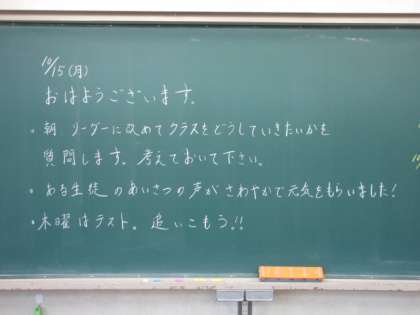 10/15(月)
おはようございます。
・朝 リーダーに改めてクラスをどうしていきたいかを
質問します。考えておいて下さい。
・ある生徒のあいさつの声がさわやかで元気をもらいました!
・木曜はテスト。追いこもう!!